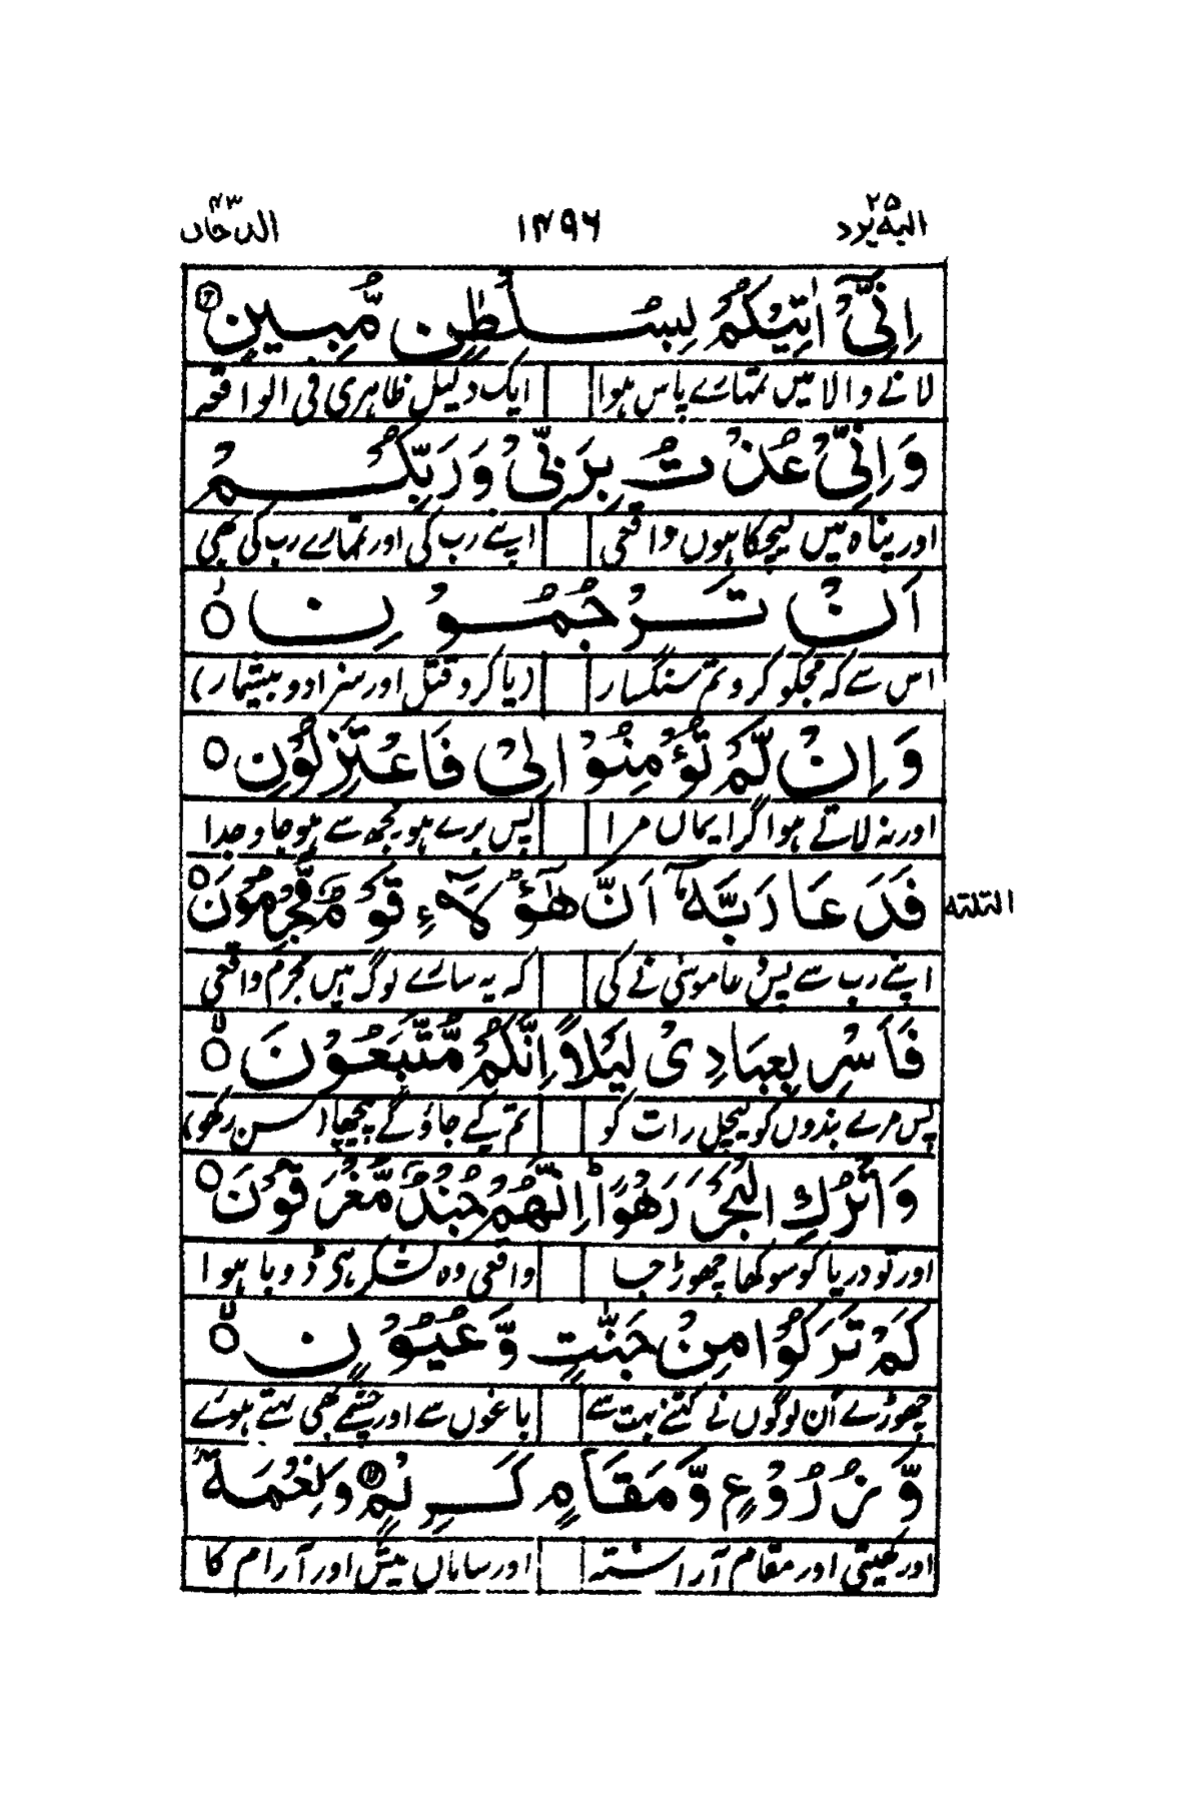 الیہ یرد ۲۵ ۱۴۹۶ الدخان ۴۳
اِنِّیْۤ اٰتِیْكُمْ بِسُلْطٰنٍ مُّبِیْنٍ
لانے والا میں تمہارے پاس ہوا ایک دلیل ظاہری فی الواقعہ
وَ اِنِّیْ عُذْتُ بِرَبِّیْ وَ رَبِّكُمْ
اور پناہ میں لیچکا ہوں واقعی اپنے رب کی اور تمہارے رب کی بھی
اَنْ تَرْجُمُوْنِ
اس سے کہ مجکو کرو تم سنگسار (یا کرو قتل اور سزا دو بیشمار)
وَ اِنْ لَّمْ تُؤْمِنُوْا لِیْ فَاعْتَزِلُوْنِ
اور نہ لاتے ہو اگر ایماں مرا پس پرے ہو مجھ سے ہو جاو جدا
فَدَعَا رَبَّهٗۤ اَنَّ هٰۤؤُلَآءِ قَوْمٌ مُّجْرِمُوْنَ
الثلثة
اپنے رب سے پس دعا موسٰی نے کی کہ یہ سارے لوگ ہیں مجرم واقعی
فَاَسْرِ بِعِبَادِیْ لَیْلًا اِنَّكُمْ مُّتَّبَعُوْنَ
پس مرے بندوں کو لیچل رات کو تم کیے جاؤگے پیچھا (سن رکھو)
وَ اتْرُكِ الْبَحْرَ رَهْوًاؕ اِنَّهُمْ جُنْدٌ مُّغْرَقُوْنَ
اور تو دریا کو سوکھا چھوڑ جا واقعی وہ لشکر ہی ڈوبا ہوا
كَمْ تَرَكُوْا مِنْ جَنّٰتٍ وَّ عُیُوْنٍ
چھوڑے ان لوگوں نے کتنے بہت سے باغوں سے اور چشمے بھی بہتے ہوے
وَّ زُرُوْعٍ وَّ مَقَامٍ كَرِیْمٍ وَّ نَعْمَةٍ
اور کھیتی اور مقام آراستہ اور ساماں عیش اور آرام کا